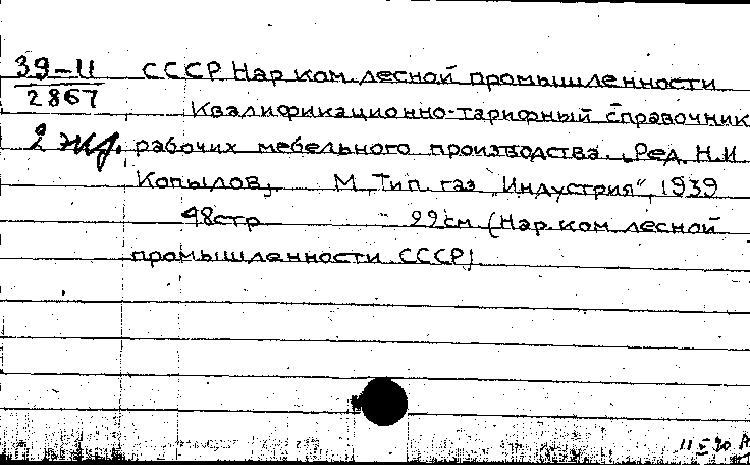 39-11 СССР. Нар. ком. лесной промышленности
2867 Квалификационно-тарифный справочник
2 экз. рабочих мебельного производства. Ред. Н.И.
Копылов, М. Тип. газ. "Индустрия", 1939
48стр 22см (Нар. ком. лесной
промышленности СССР)